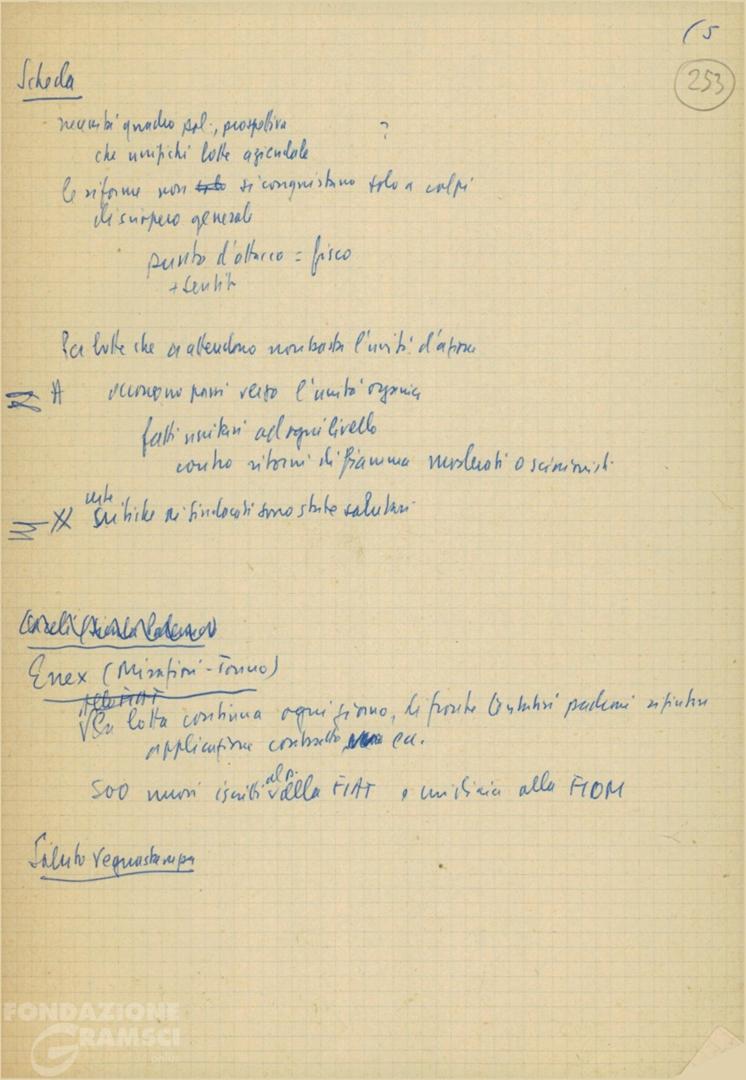 (5
253
Scheda
necessità quadro pol., prospettiva ?
che unifichi lotte aziendale
le riforme non solo si conquistano solo a colpi
di sciopero generale
punto d'attacco = fisco
+ sanità
Per lotte che ci attendono non basta l'unità d'azione
occorrono passi verso l'unità organica
fatti unitari ad ogni livello
contro ritorni di fiamma moderati o scissionisti
certe
critiche ai sindacati sono state salutari
Enex (Mirafiori - Torino)
alla FIAT
La lotta continua ogni giorno, di fronte tentativi padroni rifiutare
applicazione contratto ecc.
al p.
500 nuovi iscritti alla FIAT e migliaia alla FIOM
Saluto
FONDAZIONE
GRAMSCI